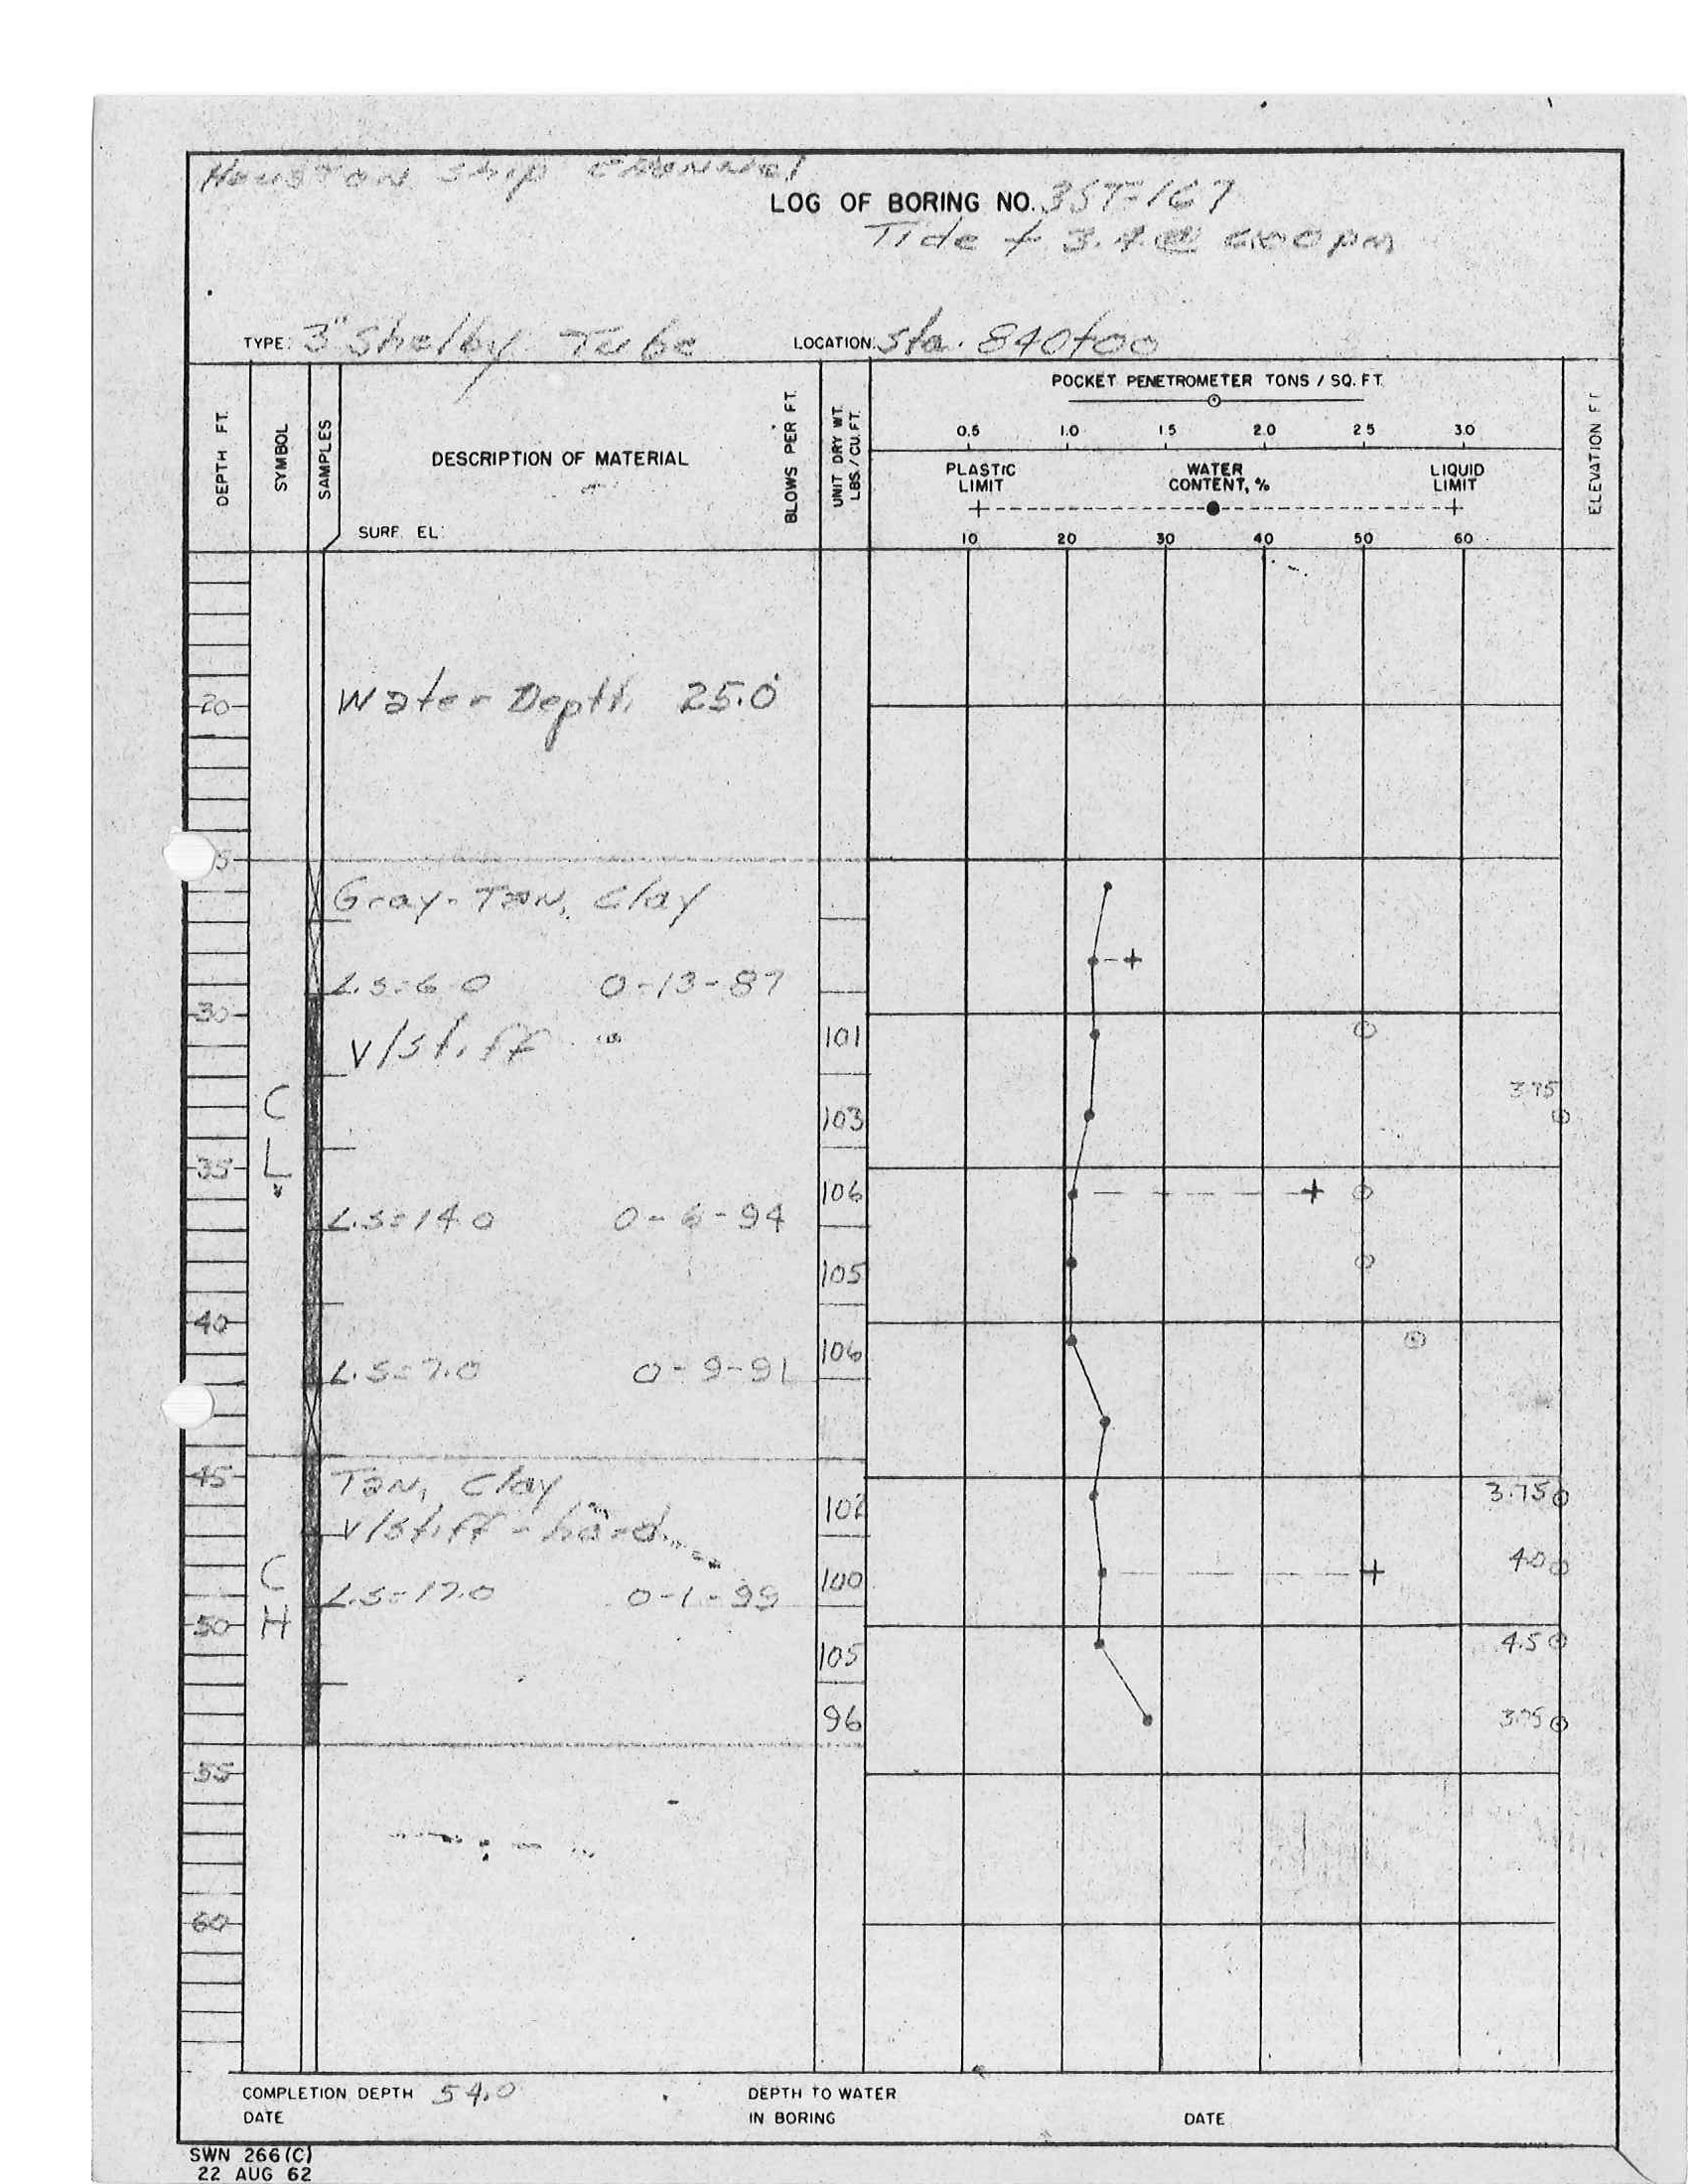 Houston Ship Channel
LOG OF BORING NO. 3ST-167
Tide + 3.4 @ 6:00 pm
TYPE: 3" Shelby Tube LOCATION: Sta. 840+00
DEPTH FT.
SYMBOL
SAMPLES
DESCRIPTION OF MATERIAL
SURF. EL:
BLOWS PER FT.
UNIT DRY WT. LBS./CU.FT.
POCKET PENETROMETER TONS / SQ. FT.
0.5 1.0 1.5 2.0 2.5 3.0
PLASTIC LIMIT
WATER CONTENT, %
LIQUID LIMIT
10 20 30 40 50 60
ELEVATION FT
20
Water Depth 25.0'
5
Gray-Tan, Clay
L.S=6.0 0-13-87
30
V/stiff
101
C
L
3.75
103
35
106
L.S=14.0 0-6-94
105
40
106
L.S=7.0 0-9-91
45
Tan, Clay
V/stiff-hard
102
3.75
C
H
L.S=17.0 0-1-99
100
4.0
50
105
4.5
96
3.75
55
60
COMPLETION DEPTH 54.0
DATE
DEPTH TO WATER
IN BORING
DATE
SWN 266(C)
22 AUG 62